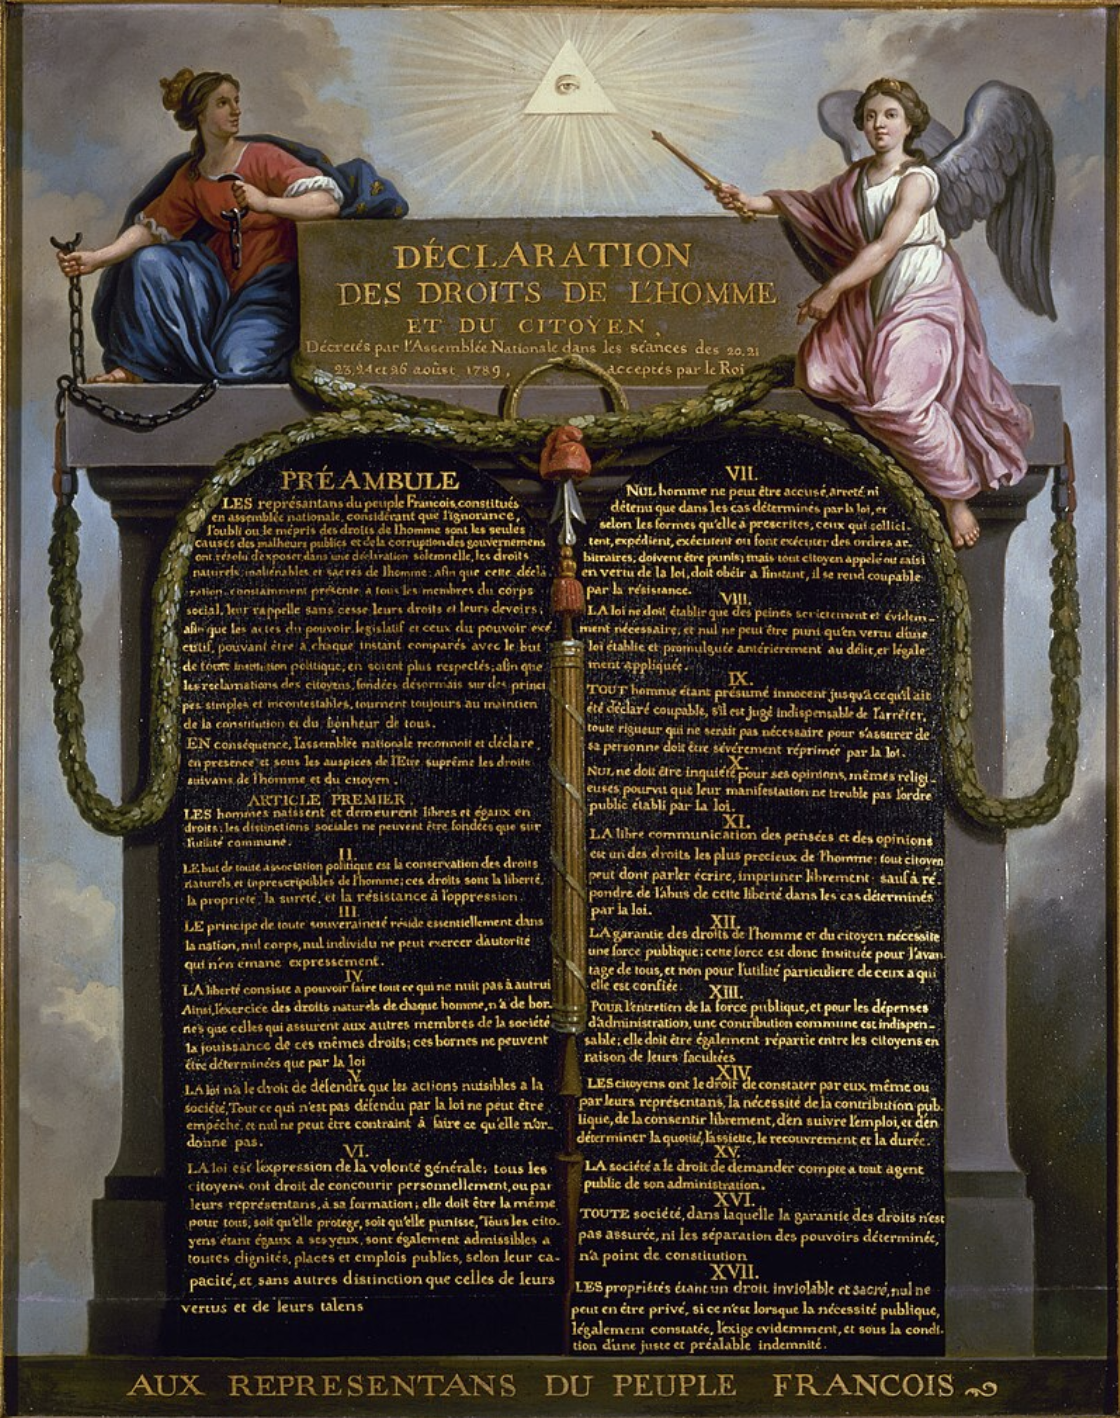 DÉCLARATION
DES DROITS DE L'HOMME
ET DU CITOYEN,
Décretés par l'Assemblée Nationale dans les séances des 20, 21
23, 24 et 26 aoûst 1789, acceptés par le Roi
PRÉAMBULE
LES représantans du peuple Francois, constitués
en assemblée nationale, considérant que l'ignorance,
l'oubli ou le mépris des droits de l'homme sont les seules
causes des malheurs publics et de la corruption des gouvernemens
ont résolu d'exposer dans une déclaration solemnelle, les droits
naturels, inaliénables et sacrés de l'homme; afin que cette décla-
ration, constamment présente a tous les membres du corps
social, leur rappelle sans cesse leurs droits et leurs devoirs,
afin que les actes du pouvoir legislatif et ceux du pouvoir exé-
cutif, pouvant être a chaque instant comparés avec le but
de toute institution politique, en soient plus respectés; afin que
les reclamations des citoyens, fondées désormais sur des princi-
pes simples et incontestables, tournent toujours au maintien
de la constitution et du bonheur de tous.
EN conséquence, l'assemblée nationale reconnoit et déclare,
en presence et sous les auspices de l'Etre suprême les droits
suivans de l'homme et du citoyen.
ARTICLE PREMIER.
LES hommes naissent et demeurent libres et égaux en
droits; les distinctions sociales ne peuvent être fondées que sur
l'utilité commune.
II.
LE but de toute association politique est la conservation des droits
naturels et inprescriptibles de l'homme; ces droits sont la liberté,
la propriété, la sureté, et la résistance à l'oppression.
III.
LE principe de toute souveraineté réside essentiellement dans
la nation, nul corps, nul individu ne peut exercer d'autorité
qui n'en émane expressement.
IV.
LA liberté consiste a pouvoir faire tout ce qui ne nuit pas à autrui
Ainsi, l'exercice des droits naturels de chaque homme, n'a de bor-
nes que celles qui assurent aux autres membres de la société
la jouissance de ces mêmes droits; ces bornes ne peuvent
être déterminées que par la loi
V.
LA loi n'a le droit de défendre que les actions nuisibles a la
société, Tout ce qui n'est pas défendu par la loi ne peut être
empéché, et nul ne peut être contraint à faire ce qu'elle n'or-
donne pas.
VI.
LA loi est l'expression de la volonté générale; tous les
citoyens ont droit de concourir personnellement, ou par
leurs représentans, à sa formation; elle doit être la même
pour tous, soit qu'elle protege, soit qu'elle punisse, Tous les cito-
yens étant égaux a ses yeux, sont également admissibles a
toutes dignités, places et emplois publics, selon leur ca-
pacité, et sans autres distinction que celles de leurs
vertus et de leurs talens
VII.
NUL homme ne peut être accusé, arreté ni
détenu que dans les cas déterminés par la loi, et
selon les formes qu'elle à prescrites, ceux qui sollici-
tent, expédient, exécutent ou font exécuter des ordres ar-
bitraires, doivent être punis; mais tout citoyen appelé ou saisi
en vertu de la loi, doit obéir a l'instant, il se rend coupable
par la résistance.
VIII.
LA loi ne doit établir que des peines strictement et évidem-
ment nécessaire, et nul ne peut être puni qu'en vertu d'une
loi établie et promulguée antérierement au délit, et légale-
ment appliquée.
IX.
TOUT homme étant présumé innocent jusqu'à ce qu'il ait
été déclaré coupable, s'il est jugé indispensable de l'arrêter,
toute rigueur qui ne serait pas nécessaire pour s'assurer de
sa personne doit être sévérement réprimée par la loi.
X.
NUL ne doit être inquiété pour ses opinions, mêmes religi-
euses, pourvu que leur manifestation ne trouble pas l'ordre
public établi par la loi.
XI.
LA libre communication des pensées et des opinions
est un des droits les plus precieux de l'homme; tout citoyen
peut dont parler écrire, imprimer librement: sauf à ré-
pondre de l'abus de cette liberté dans les cas déterminés
par la loi.
XII.
LA garantie des droits de l'homme et du citoyen nécessite
une force publique; cette force est donc instituée pour l'avan-
tage de tous, et non pour l'utilité particuliere de ceux a qui
elle est confiée.
XIII.
POUR l'entretien de la force publique, et pour les dépenses
d'administration, une contribution commune est indispen-
sable; elle doit être également répartie entre les citoyens en
raison de leurs facultées
XIV.
LES citoyens ont le droit de constater par eux même ou
par leurs représentans, la nécessité de la contribution pub-
lique, de la consentir librement, d'en suivre l'emploi, et d'en
déterminer la quotité, l'assiette, le recouvrement et la durée.
XV.
LA société a le droit de demander compte a tout agent
public de son administration.
XVI.
TOUTE société, dans laquelle la garantie des droits n'est
pas assurée, ni les séparation des pouvoirs déterminée,
n'a point de constitution
XVII.
LES propriétés étant un droit inviolable et sacré, nul ne
peut en être privé, si ce n'est lorsque la nécessité publique,
légalement constatée, l'exige evidemment, et sous la condi-
tion d'une juste et préalable indemnité.
AUX REPRESENTANS DU PEUPLE FRANCOIS